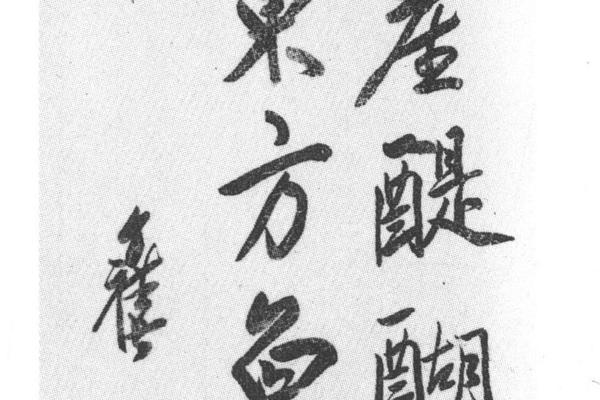 座醍醐
東方白